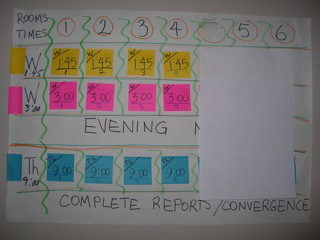 ROOMS 1 2 3 4 5 6
TIMES
W 1:45 W/1:45/1 W/1:45/2 W/1:45/3 W/1:45/4
W 3:00 W/3:00/1 W/3:00/2 W/3:00/3 W/3:00/4
EVENING
Th 9:00 Th/9:00/1 Th/9:00 Th/9:00 Th/9:00
COMPLETE REPORTS/CONVERGENCE